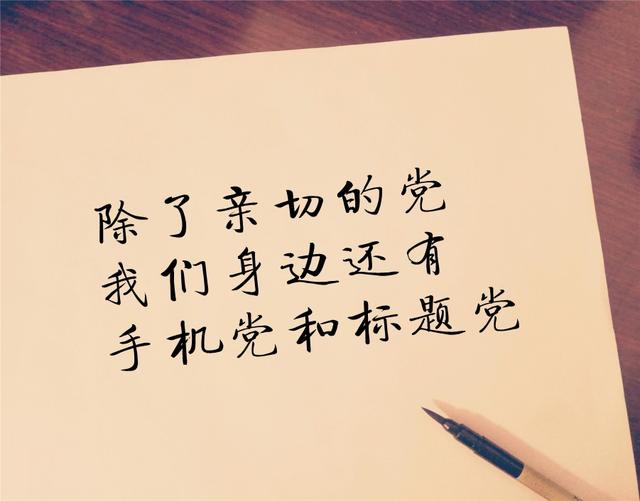 除了亲切的党
我们身边还有
手机党和标题党